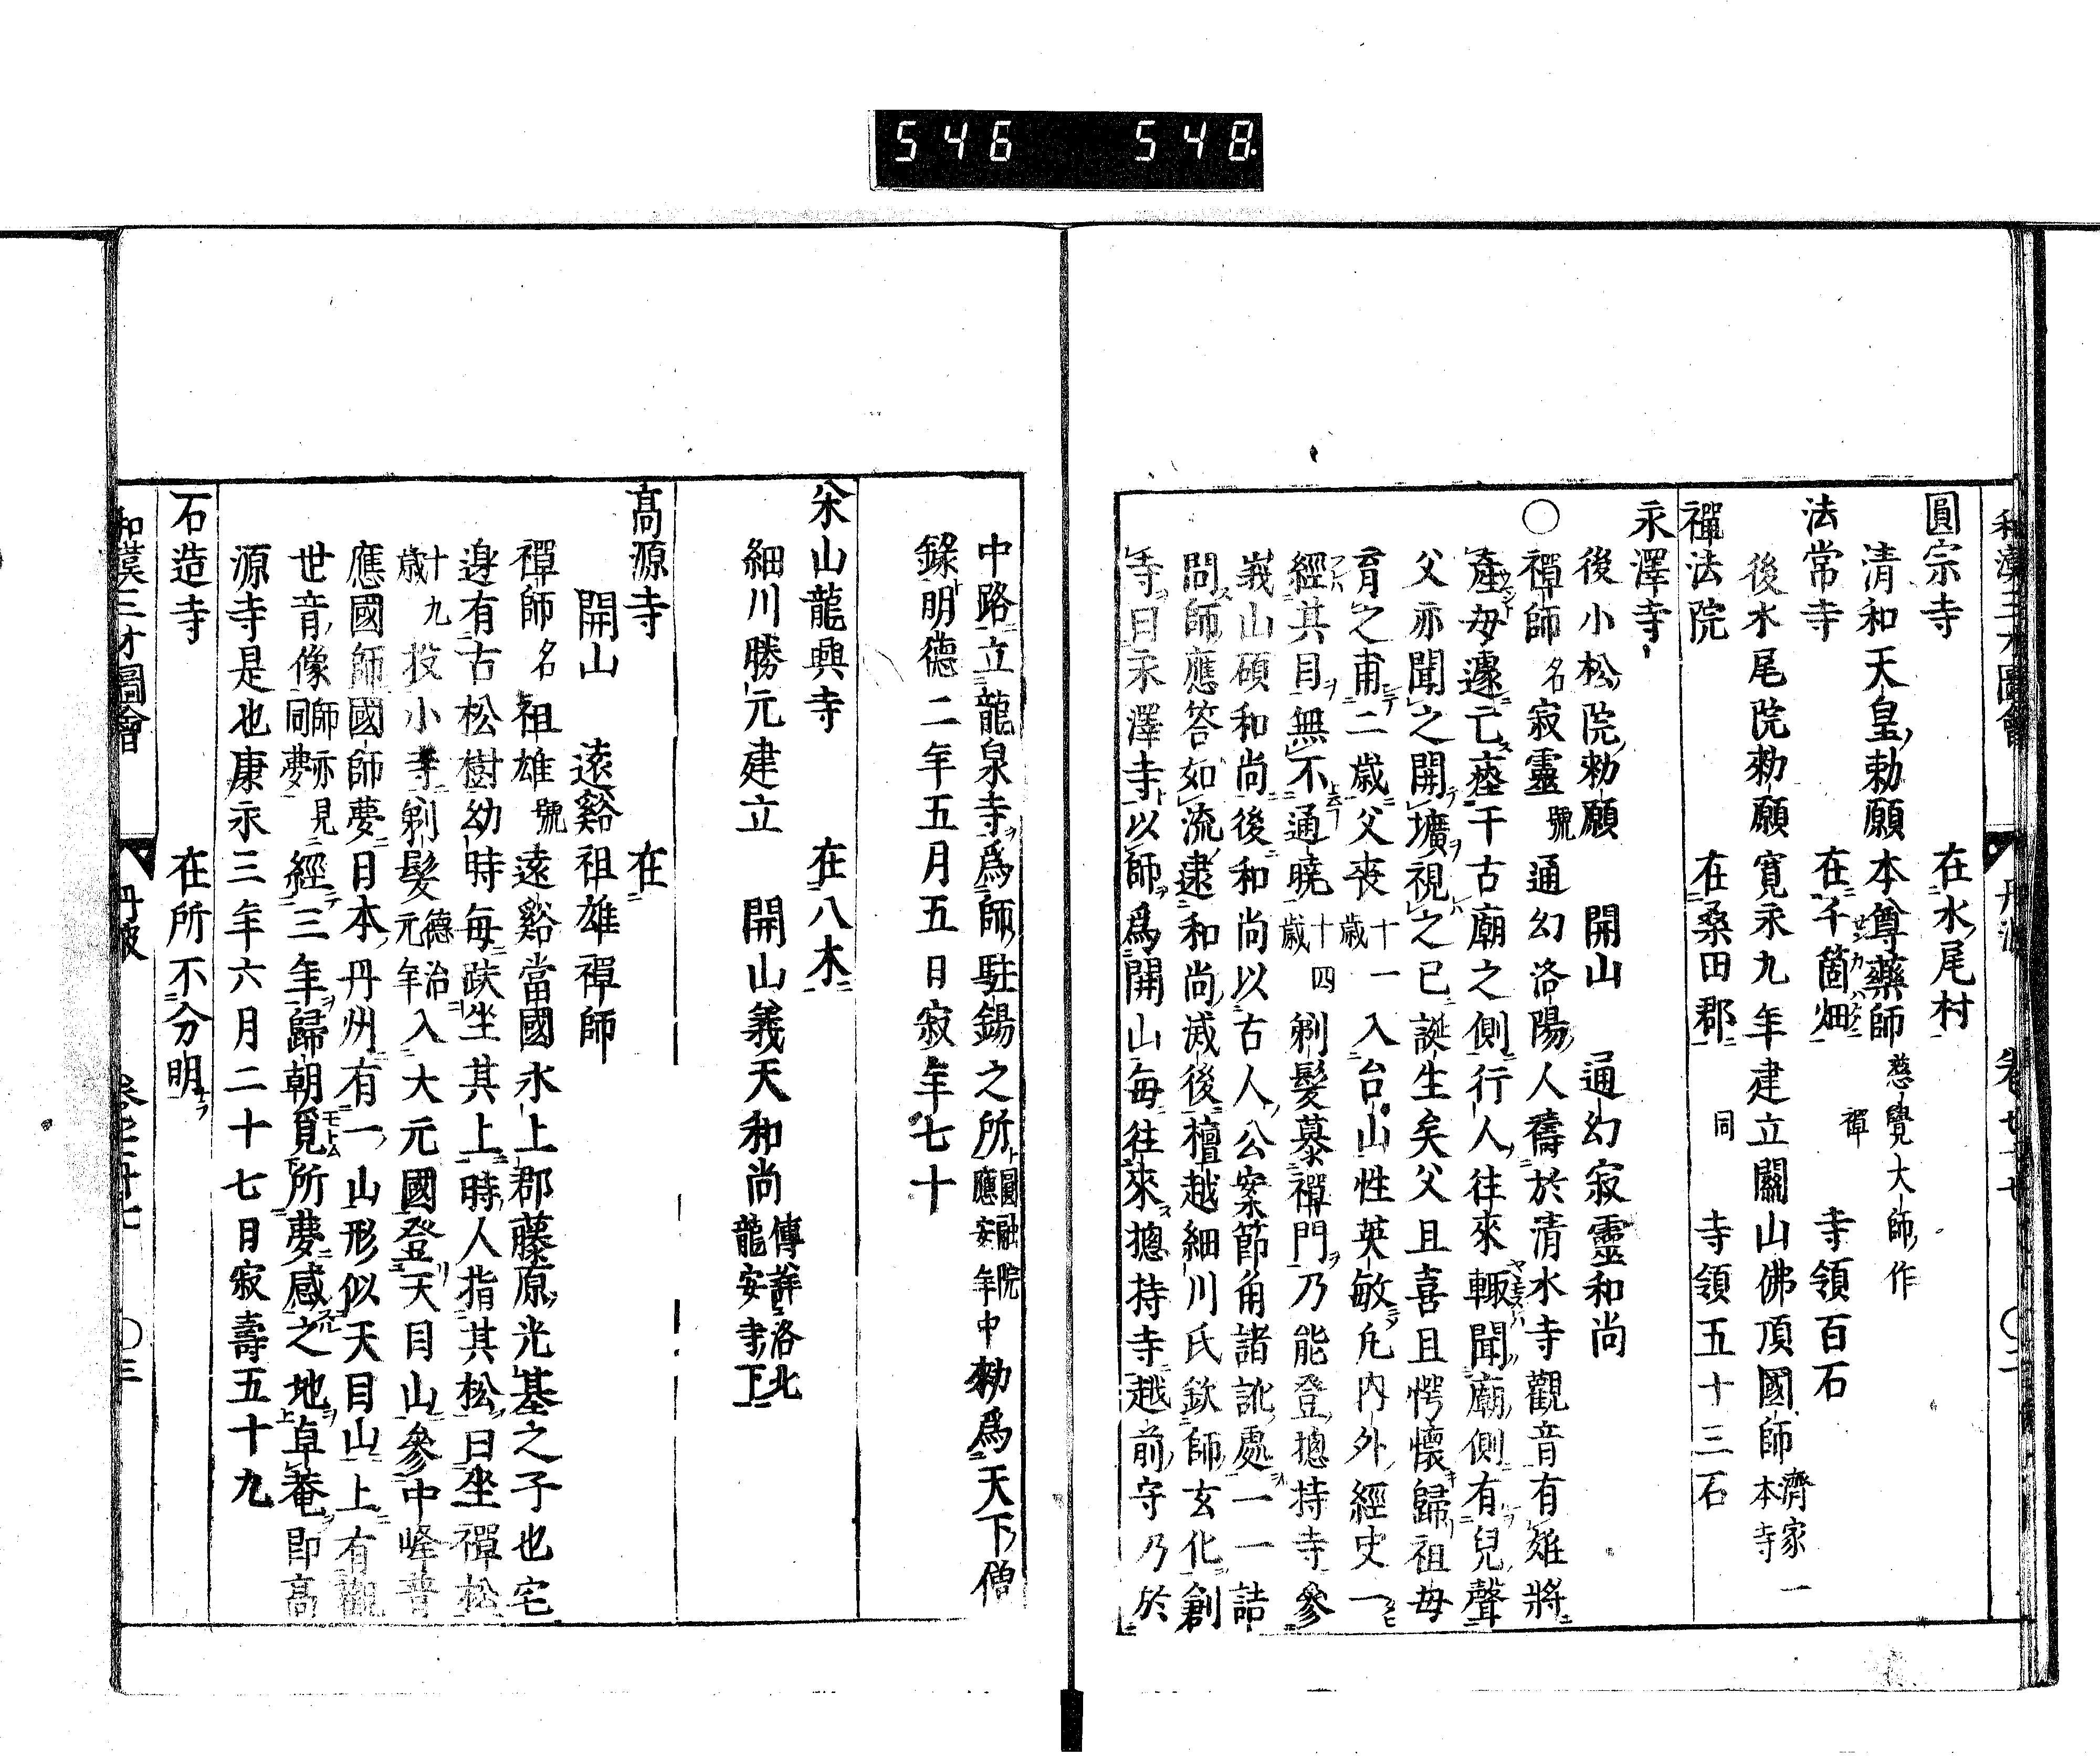 546 548
和漢三才圖會 丹波 卷七十七 〇二
圓宗寺 在水尾村
清和天皇勅願 本尊藥師 慈覺大師作
法常寺 在千箇畑 禪 寺領百石
後水尾院勅願 寛永九年建立 關山佛頂國師 濟家一本寺
禪法院 在桑田郡 同 寺領五十三石
永澤寺
後小松院勅願 開山 通幻寂靈和尚
〇禪師名寂靈號通幻洛陽人禱於清水寺觀音有娠將
產母遽亡塟于古廟之側行人往來輙聞廟側有兒聲
父亦聞之開壙視之已誕生矣父且喜且愕懷歸祖母
育之甫二歳父喪十一歳入台山性英敏凡內外經史一
經其目無不通曉十四歳剃髮慕禪門乃能登摠持寺參
峩山碩和尚後和尚以古人公案節角諸訛處一一詰
問師應答如流逮和尚滅後檀越細川氏欽師玄化創
寺曰永澤寺以師爲開山每往來摠持寺越前守乃於
中路立龍泉寺爲師駐錫之所圓融院應安年中勅爲天下僧
錄明德二年五月五日寂年七十
米山龍興寺 在八木
細川勝元建立 開山義天和尚 傳詳洛北龍安寺下
髙源寺 在
開山 遠谿祖雄禪師
禪師名祖雄號遠谿當國氷上郡藤原光基之子也宅
邊有古松樹幼時每趺坐其上時人指其松曰坐禪松
十九歳投小寺剃髮德治元年入大元國登天目山參中峰普
應國師國師夢日本丹州有一山形似天目山上有觀
世音像師亦見同夢經三年歸朝覓所夢感之地卓菴即髙
源寺是也康永三年六月二十七日寂壽五十九
石造寺 在所不分明
和漢三才圖會 丹波 卷之七十七 〇三